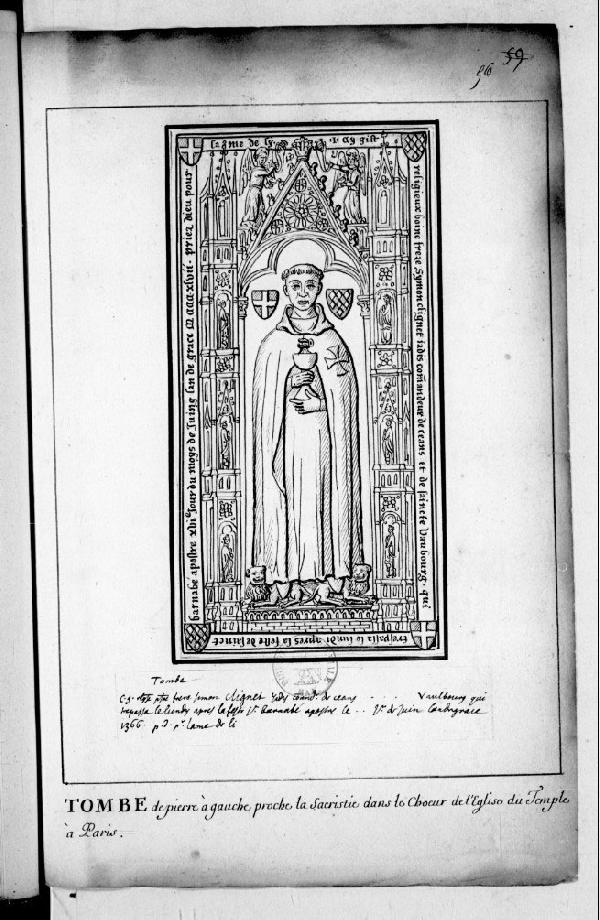 59
Cy gist
religieux home frere Symon clignet iadis comandeur de ceans et de saincte Vaubourg · qui
trespassa le lundi apres la feste de sainct
barnabe apostre xvi iour du moys de iuing lan de grace M CCCC xlvii · priez dieu pour
l ame de
Tombe
frere Simon Clignet Jadis comd. de ceans . . . Vaulbourg qui
trepassa le lundy apres la feste St. Barnabé apostre le . . de Juin lan de grace
1366 p D pr lame de li
TOMBE de pierre à gauche proche la Sacristie dans le Choeur de l'Eglise du Temple
à Paris.